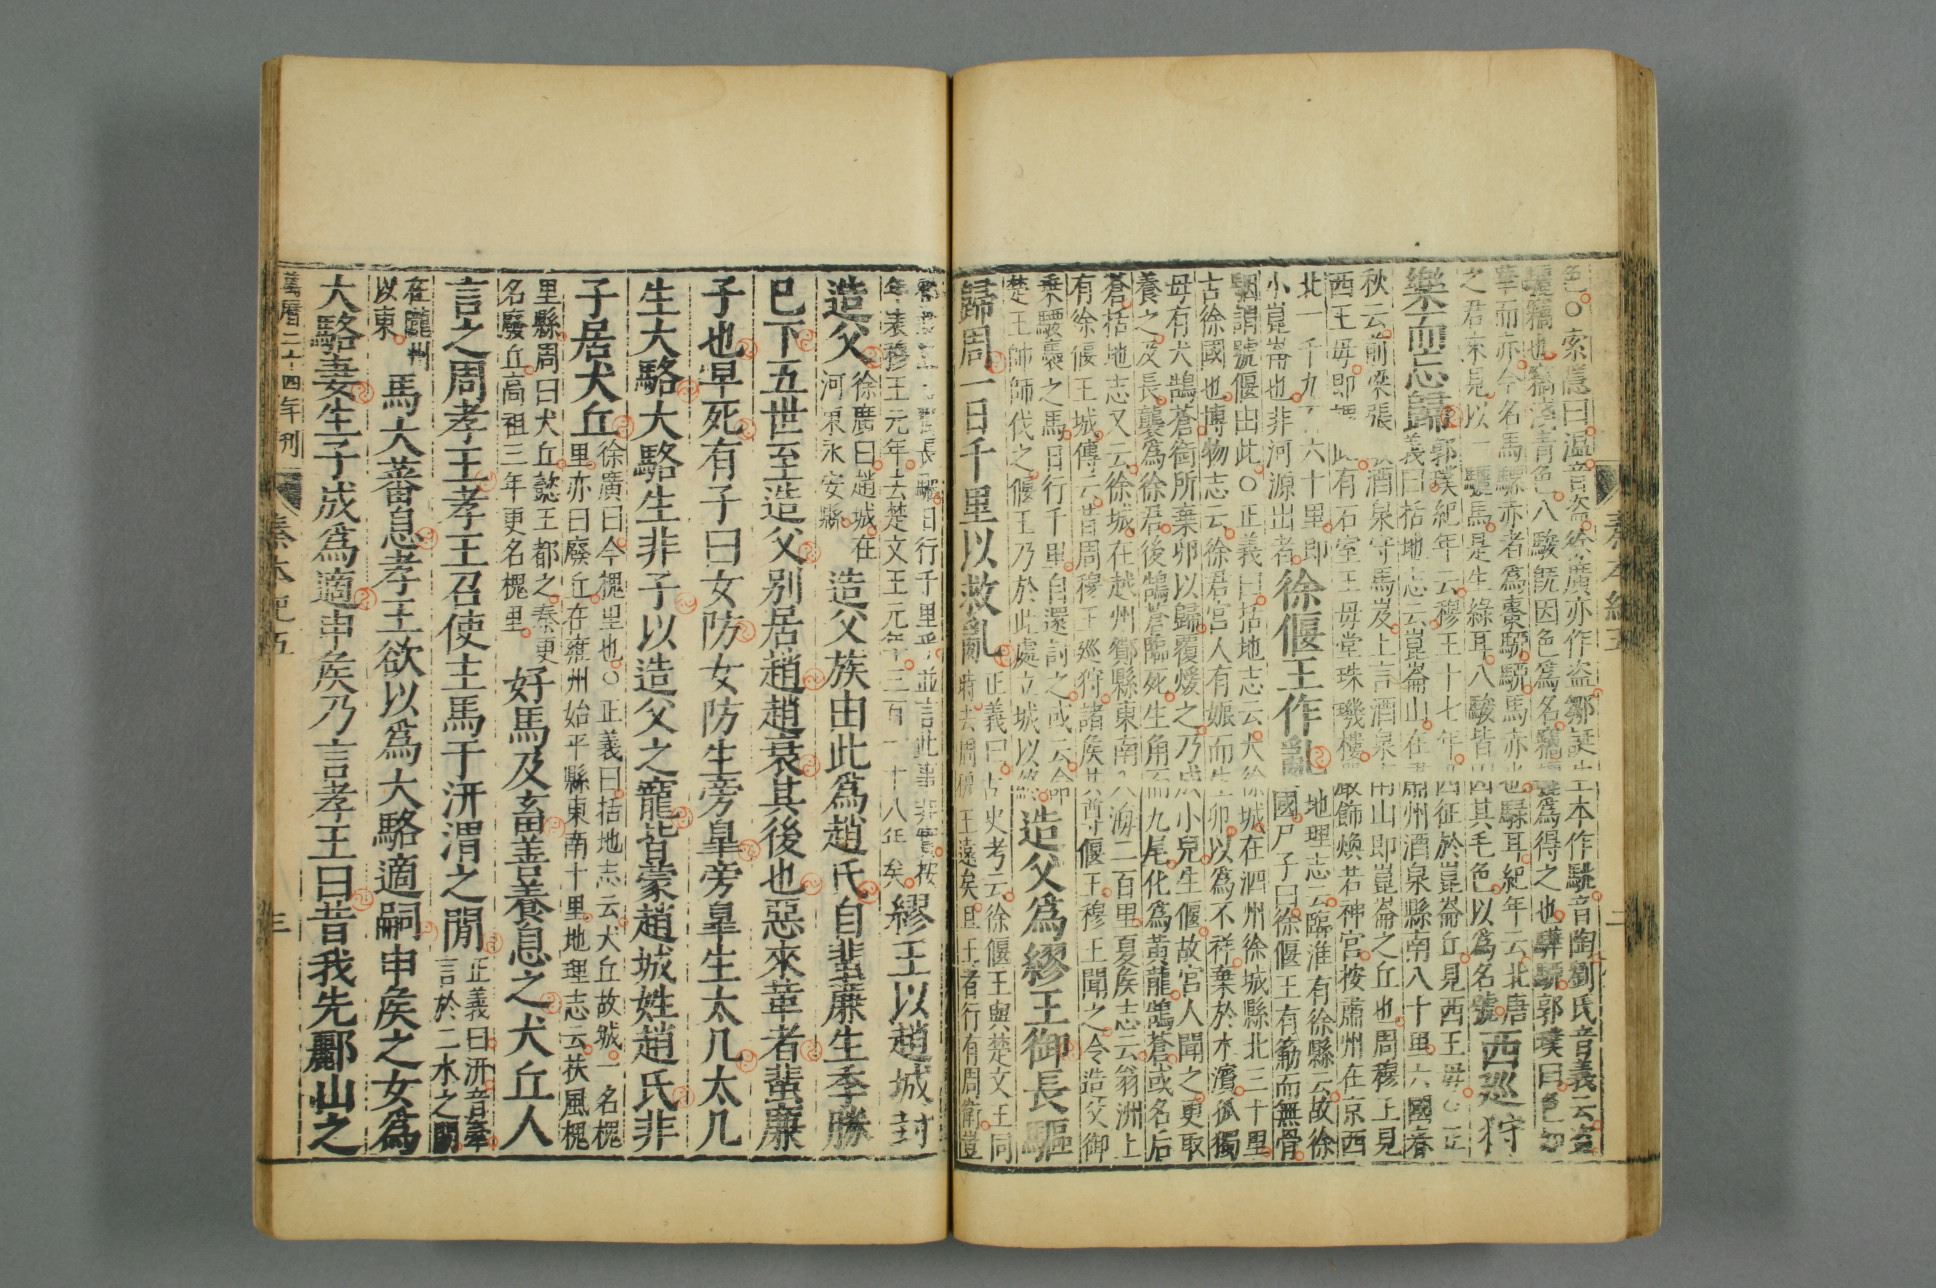 秦本紀五 二
色○索隱曰溫音盜徐廣亦作盜鄒誕生本作駣音陶劉氏音義云盜
驪竊也竊淺青色八駿旣因色爲名驪爲得之也驊騮郭璞曰色如
華而赤今名馬驃赤者爲棗騮騮馬赤也騄耳紀年云北唐
之君來見以一驪馬是生綠耳八駿皆因其毛色以爲名號
西巡狩
樂而忘歸
郭璞紀年云穆王十七年西征於崑崙丘見西王母○正
義曰括地志云崑崙山在肅州酒泉縣南八十里六國春
秋云前梁張 酒泉守馬岌上言酒泉南山即崑崙之丘也周穆王見
西王母即 此有石室王母堂珠璣樓嚴飾煥若神宮按肅州在京西
北一千九 六十里即
小崑崙也非河源出者
徐偃王作亂
地理志云臨淮有徐縣云故徐
國尸子曰徐偃王有筋而無骨
駰謂號偃由此○正義曰括地志云大徐城在泗州徐城縣北三十里
古徐國也博物志云徐君宮人有娠而生卵以爲不祥棄於水濱孤獨
母有犬鵠蒼銜所棄卵以歸覆煖之乃成小兒生偃故宮人聞之更取
養之及長襲爲徐君後鵠蒼臨死生角而九尾化爲黃龍鵠蒼或名后
蒼括地志又云徐城在越州鄮縣東南入海二百里夏侯志云翁洲上
有徐偃王城傳云昔周穆王巡狩諸侯共尊偃王穆王聞之令造父御
乘騕褭之馬日行千里自還討之或云命
楚王帥師伐之偃王乃於此處立城以終
造父爲繆王御長驅
歸周一日千里以救亂
正義曰古史考云徐偃王與楚文王同
時去周穆王遠矣且王者行有周衛豈
長驅日行千里乎並言此事非實按
年表穆王元年去楚文王元年三百一十八年矣
繆王以趙城封
造父
徐廣曰趙城在
河東永安縣
造父族由此爲趙氏自蜚廉生季勝
已下五世至造父別居趙趙衰其後也惡來革者蜚廉
子也早死有子曰女防女防生旁皐旁皐生太几太几
生大駱大駱生非子以造父之寵皆蒙趙城姓趙氏非
子居犬丘
徐廣曰今槐里也○正義曰括地志云犬丘故城一名槐
里亦曰廢丘在雍州始平縣東南十里地理志云扶風槐
里縣周曰犬丘懿王都之秦更
名廢丘高祖三年更名槐里
好馬及畜善養息之犬丘人
言之周孝王孝王召使主馬于汧渭之閒
正義曰汧音牽
言於二水之閒
在隴州
以東
馬大蕃息孝王欲以爲大駱適嗣申侯之女爲
大駱妻生子成爲適申侯乃言孝王曰昔我先酈山之
萬曆二十四年刊 秦本紀五 三